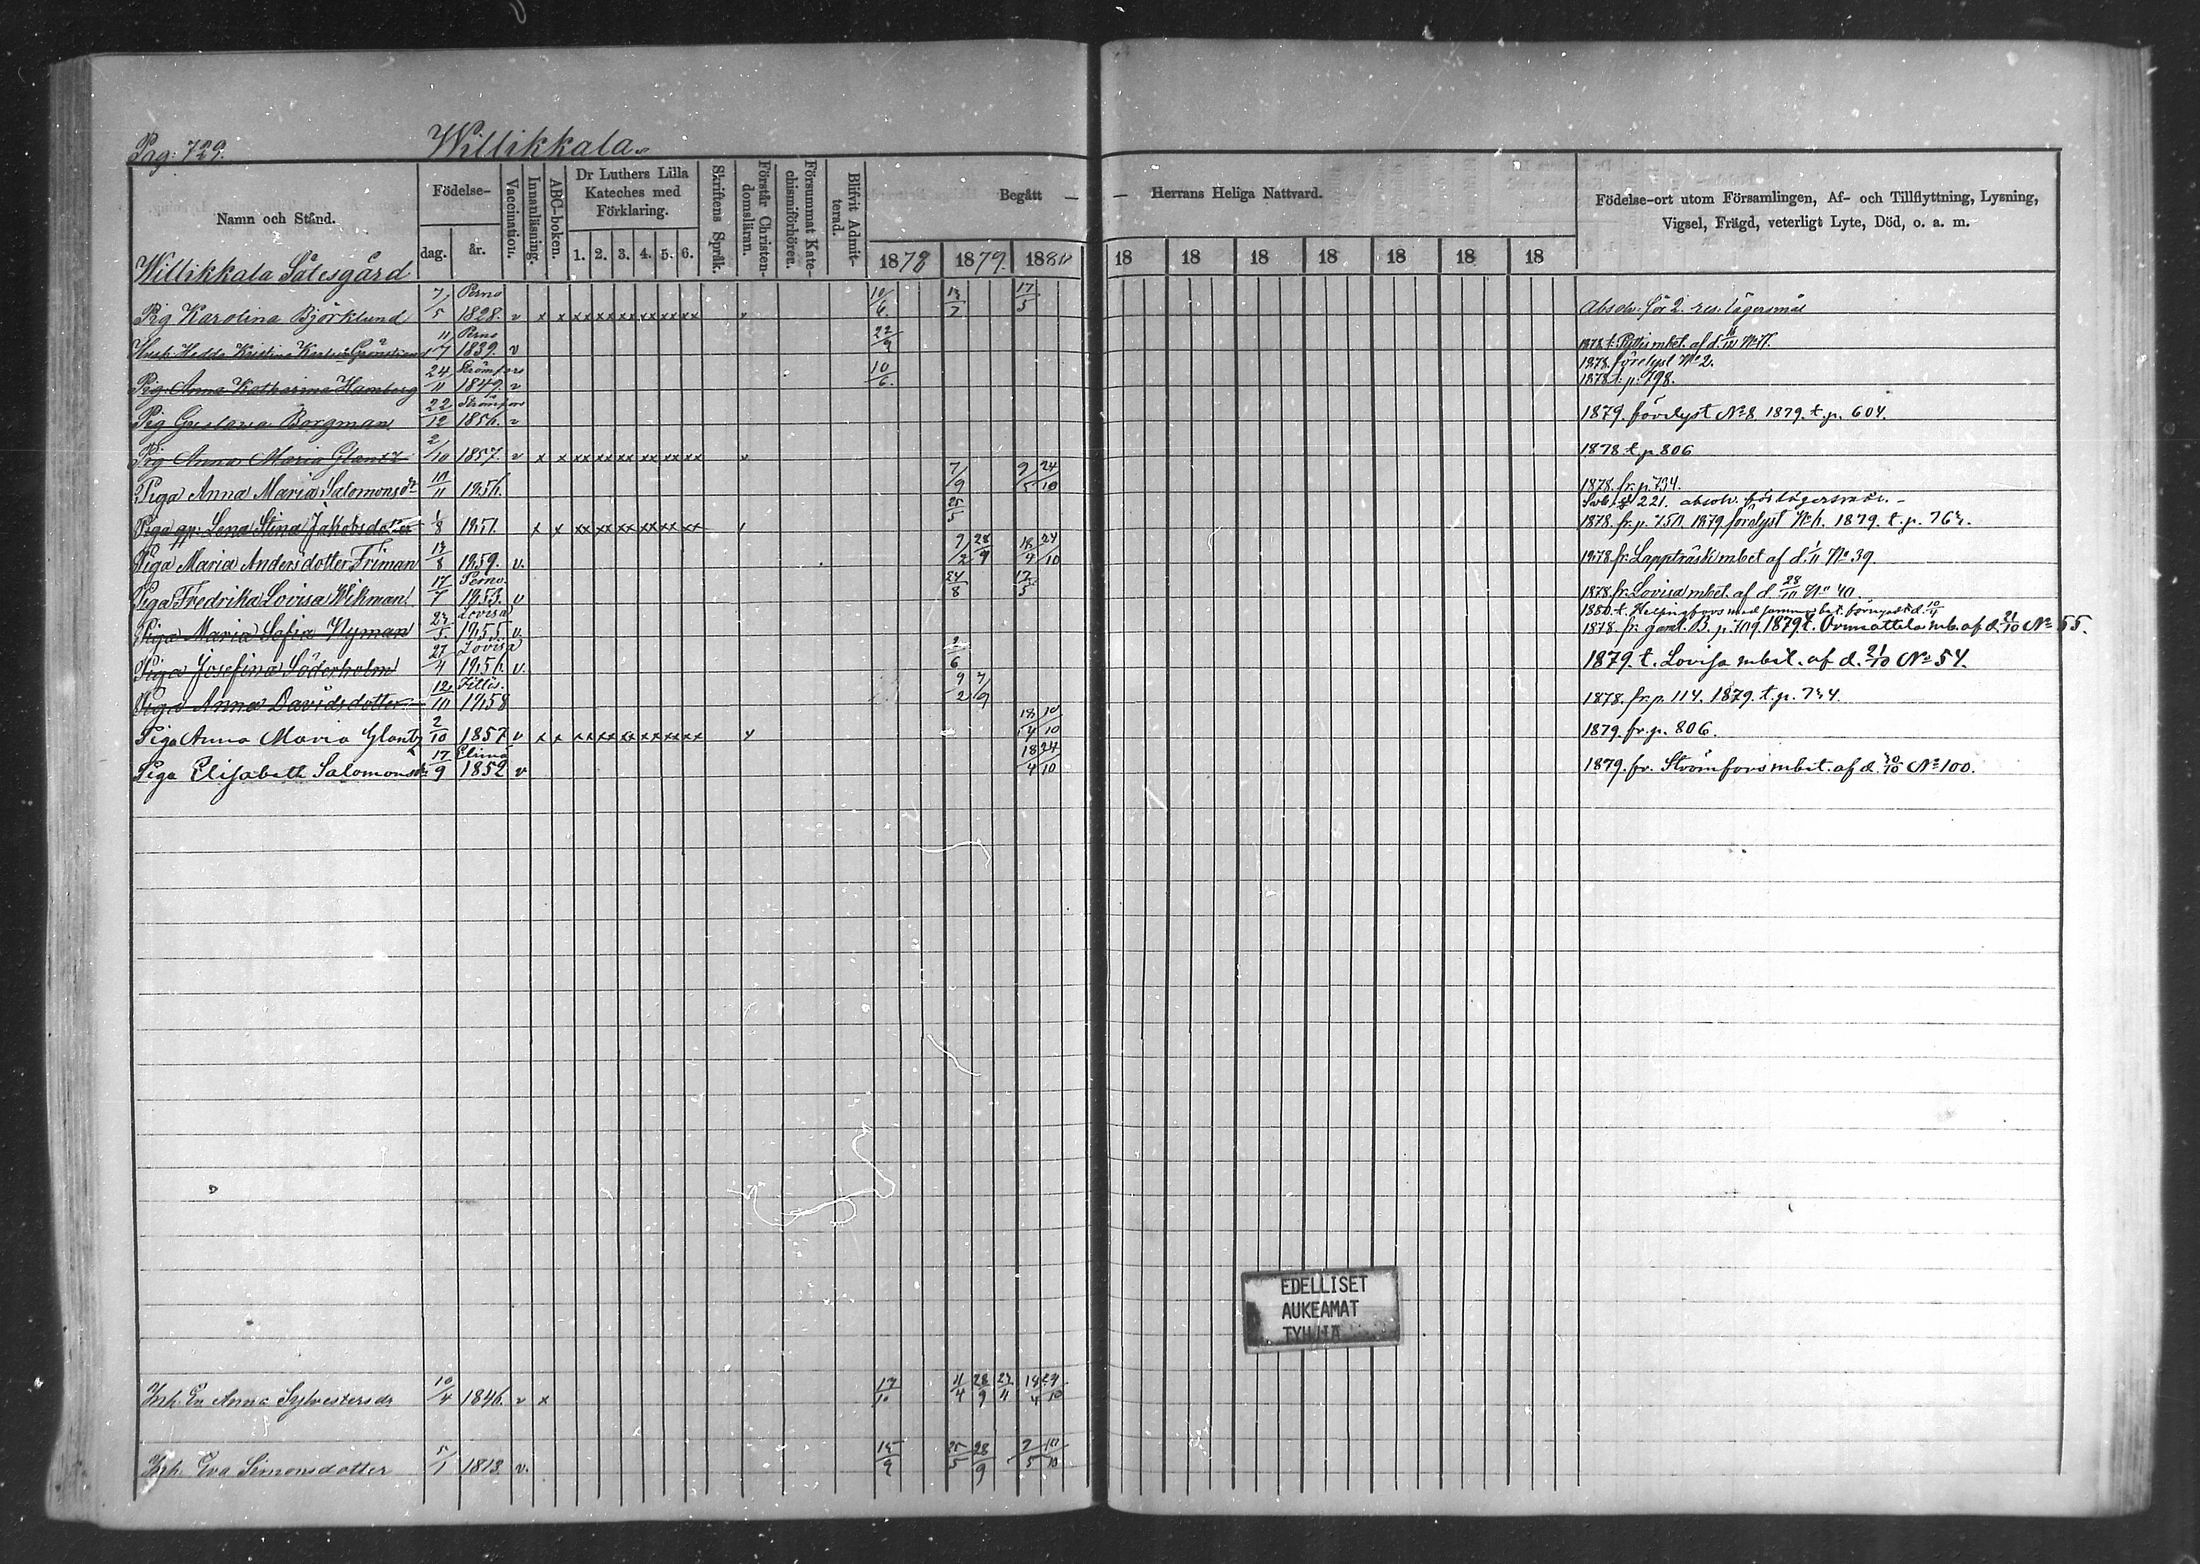 Pag: 729.
Willikkala
Namn och Stånd.
Födelse-
dag.
år.
Vaccination.
Innanläsning.
ABC-boken.
Dr Luthers Lilla
Kateches med
Förklaring.
1. 2. 3. 4. 5. 6.
Skriftens Språk.
Förstår Christen-
domsläran.
Försummat Kate-
chismiförhören.
Blifvit Admit-
terad.
Begått — — Herrans Heliga Nattvard.
1878 1879. 1880 18 18 18 18 18 18 18
Födelse-ort utom Församlingen, Af- och Tillflyttning, Lysning,
Vigsel, Frägd, veterligt Lyte, Död, o. a. m.
Willikkala Sätesgård
Pig Karolina Björklund 7/5 Perno 1828. v x x xx xx xx xx xx xx v 10/6 17/5 Absolv. för 2. res. lägersmål
Hedda Kristina 11/7 Perno 1839. v 22/9 1878 t. mbet. af d.
Pig. Anna Katharina Hamberg 24/11 Strömfors 1849. v 10/6. 1878. förelyst No 2.
1878 t. p. 798.
Pig Gustava Borgman 22/12 Strömfors 1856. v 1879. förelyst No 8 1879. t. p. 604.
Pig Anna Maria Glantz 2/10 1857. v x x xx xx xx xx xx xx v 1878 t. p 806
Piga Anna Maria Salomonsdr 10/11 1856. 7/9 9/5 24/10 1878. fr. p. 734.
221. absolv. för lägersmål. -
Piga Lena Stina Jakobsdotter 1/8 1851. x x xx xx xx xx xx xx 25/5 1878. fr. p. 750. 1879 förelyst No 6. 1879. t. p. 767.
Piga Maria Andersdotter Friman 1859. v. 9/2 28/9 18/4 24/10 1878 fr. Lappträsk mbet af d. 1/11 No 39.
Piga Fredrika Lovisa Wikman 17/7 Perno. 1853. v 24/8 17/5 1878. fr. Lovisa mbet. af d 28/10 No 40.
1880. t. Helsingfors med samma bet. förnyadt d. 10/4
Piga Maria Sofia Nyman Lovisa 1855. v. 1878. fr. gaml. B. p. 709. 1879. t. Orimattila mb. af d. 21/10 No 55.
Piga Josefina Söderholm 27/4 Lovisa 1856. v. 1879. t. Lovisa mbet. af d. 21/10 No 54.
Piga Anna Davidsdotter 12/10 1858 9/2 7/9 1878. fr. p. 114. 1879. t. p. 734.
Piga Anna Maria Glantz 2/10 1857 v x x xx xx xx xx xx xx v 18/4 10/10 1879. fr. p. 806.
Piga Elisabeth Salomonsdr 17/9 Elimä 1852 v 18/4 24/10 1879. fr. Strömfors mbet. af d. 30/10 No 100.
EDELLISET
AUKEAMAT
TYHJIÄ
Inh. En Anna Sylvestersdr 10/4 1846. v x 11/4 28/9 18/4 24/10
Inh. Eva Simonsdotter 5/1 1813 v. 25/5 28/9 10/10